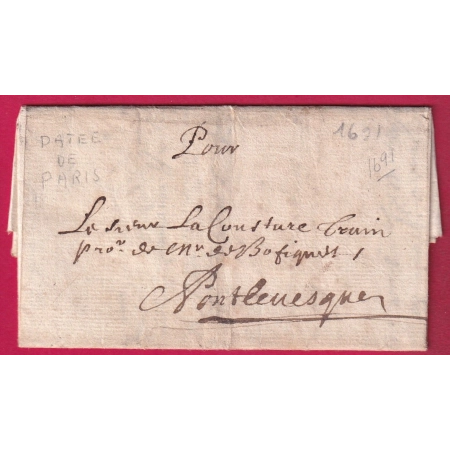 DATEE
DE
PARIS
1691
1691
Pour
Le sieur La Cousture Train
pror. de Mr. de Bosiquet
Pontleuesque